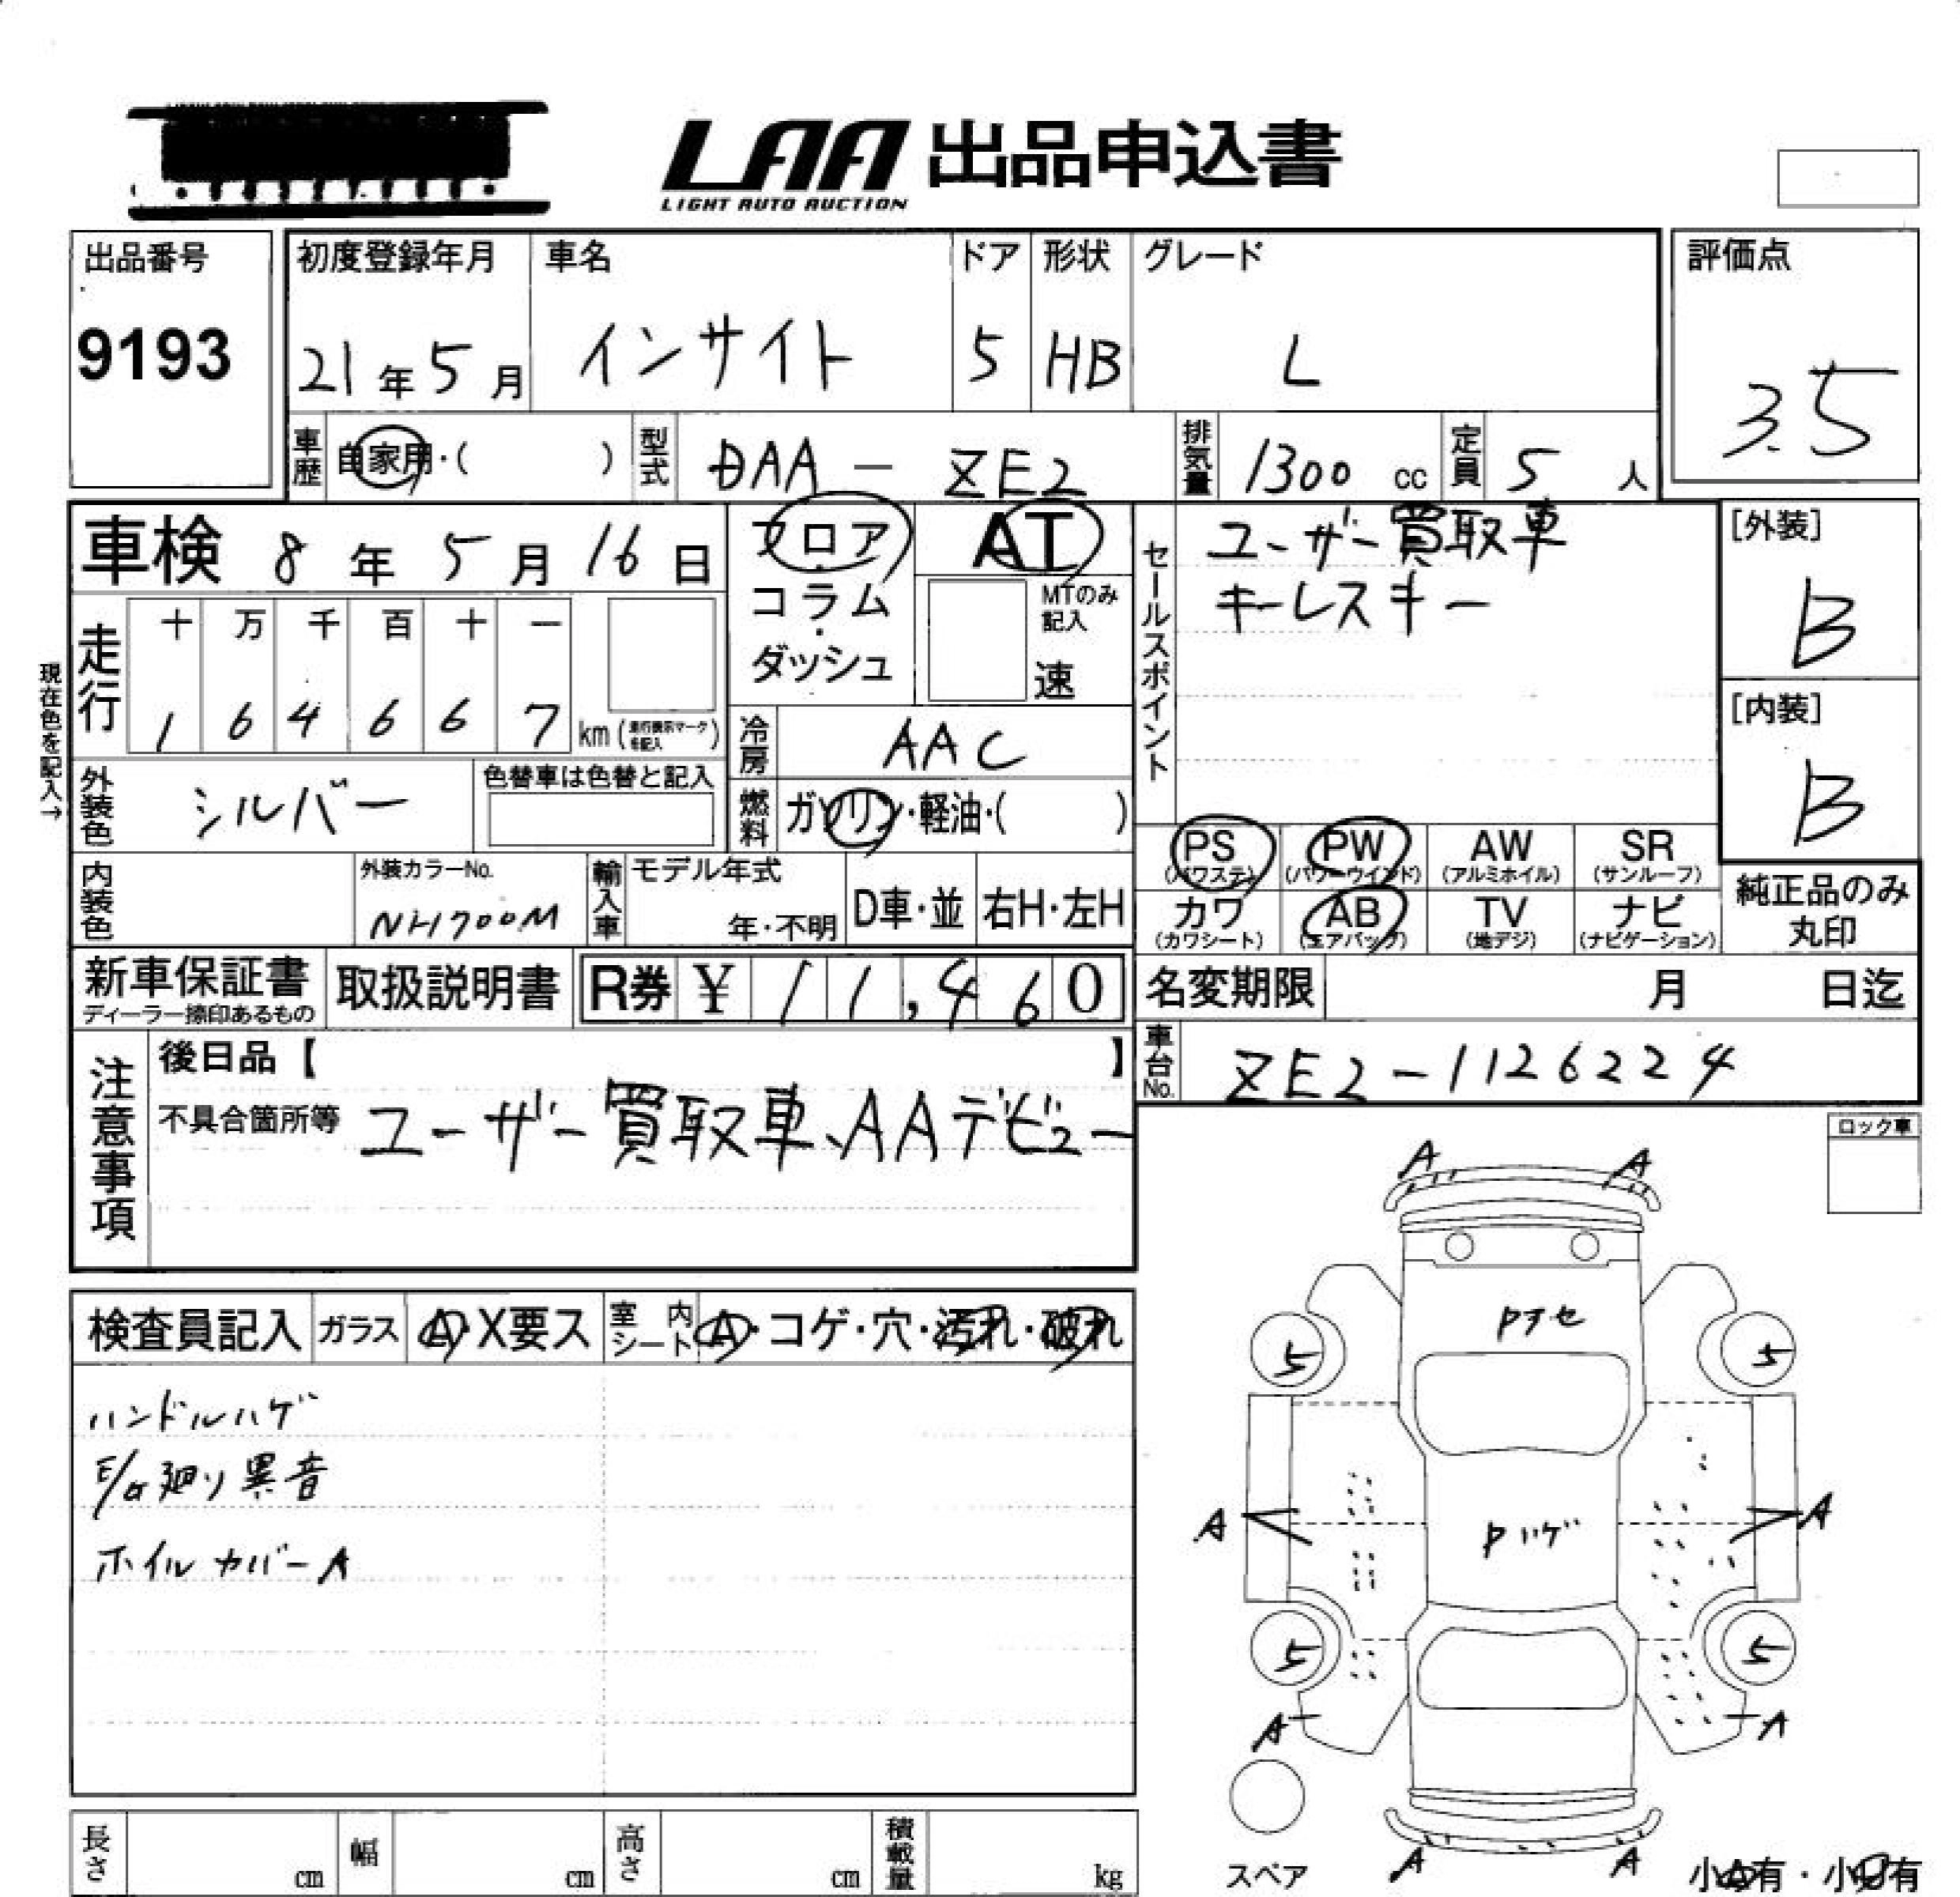 LAA 出品申込書
LIGHT AUTO AUCTION
出品番号
9193
初度登録年月
21年5月
車名
インサイト
ドア
5
形状
HB
グレード
L
評価点
3.5
車歴
自家用・( )
型式
DAA - ZE2
排気量
1300 cc
定員
5 人
車検 8年5月16日
フロア・コラム・ダッシュ
AT
MTのみ記入
速
セールスポイント
ユーザー買取車
キーレスキー
[外装]
B
[内装]
B
現在色を記入→
走行
十 万 千 百 十 一
1 6 4 6 6 7 km (走行表示マークを記入)
冷房
AAC
外装色
シルバー
色替車は色替と記入
燃料
ガソリン・軽油・( )
PS (パワステ)
PW (パワーウインド)
AW (アルミホイル)
SR (サンルーフ)
カワ (カワシート)
AB (エアバック)
TV (地デジ)
ナビ (ナビゲーション)
純正品のみ丸印
内装色
外装カラーNo.
NH700M
輸入車
モデル年式
年・不明
D車・並
右H・左H
新車保証書
ディーラー捺印あるもの
取扱説明書
R券 ¥11,460
名変期限 月 日迄
車台No.
ZE2-1126224
注意事項
後日品【 】
不具合箇所等 ユーザー買取車、AAデビュー
ロック車
検査員記入
ガラス
A・X要ス
室内シート
A・コゲ・穴・汚れ・破れ
ハンドルハゲ
E/G廻り異音
ホイルカバーA
A A
Pオセ
5 5
A A
Pハゲ
5 5
A A
A A
スペア
小A有・小U有
長さ cm
幅 cm
高さ cm
積載量 kg